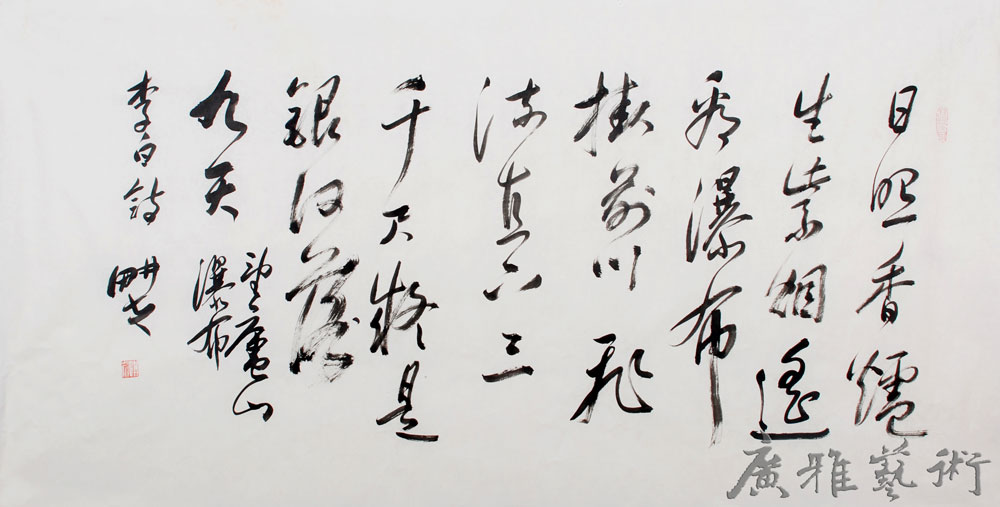 日照香爐
生紫烟遙
看瀑布
掛前川飛
流直下三
千尺疑是
銀河落
九天
望廬山
瀑布
李白詩
廣雅藝術